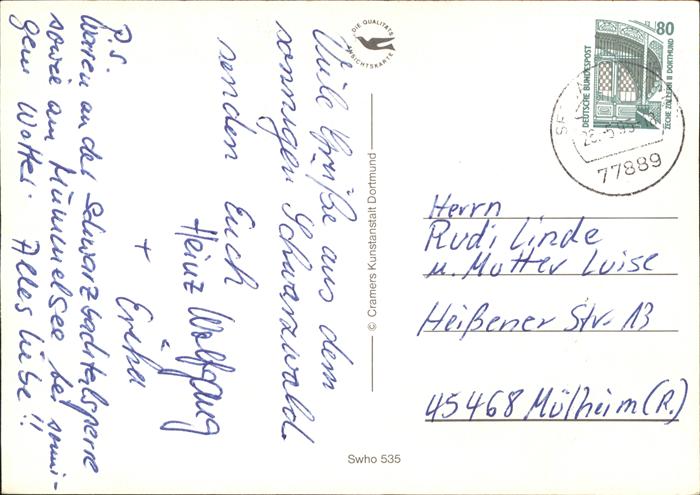 Viele Grüße aus dem
sonnigen Schwarzwald
senden Euch
Heinz Wolfgang
+
Erika
P.S.
Waren an der Schwarzbachtalsperre
sowie am Mummelsee bei sonni-
gem Wetter. Alles Liebe!!
DIE QUALITÄTS
ANSICHTSKARTE
© Cramers Kunstanstalt Dortmund
Swho 535
80
DEUTSCHE BUNDESPOST
ZECHE ZOLLERN II DORTMUND
77889
Herrn
Rudi Linde
u. Mutter Luise
Heißener Str. 13
45468 Mülheim (R.)